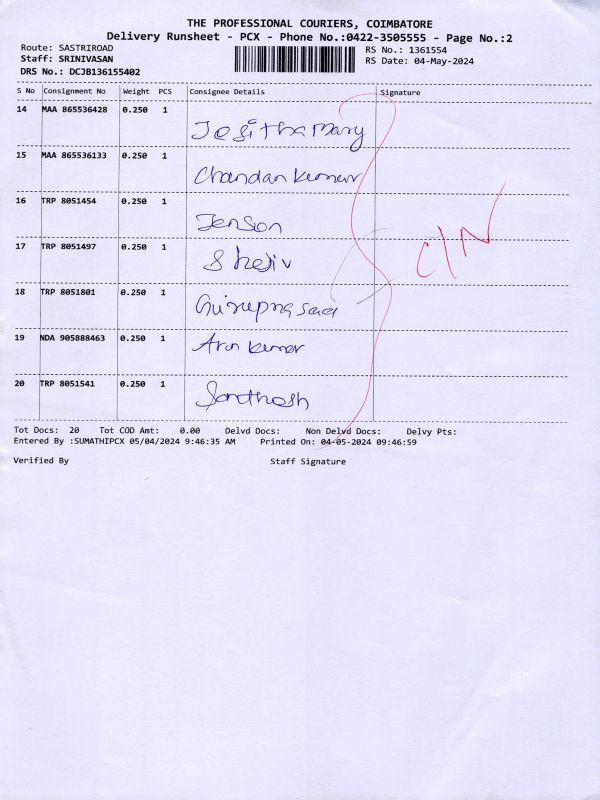 THE PROFESSIONAL COURIERS, COIMBATORE
Delivery Runsheet - PCX - Phone No.:0422-3505555 - Page No.:2
Route: SASTRIROAD RS No.: 1361554
Staff: SRINIVASAN RS Date: 04-May-2024
DRS No.: DCJB136155402
S No Consignment No Weight PCS Consignee Details Signature
14 MAA 865536428 0.250 1 Jesitha Mary
15 MAA 865536133 0.250 1 Chandan Kumar
16 TRP 8051454 0.250 1 Jenson
C/N
17 TRP 8051497 0.250 1
18 TRP 8051801 0.250 1
19 NDA 905888463 0.250 1 Arun kumar
20 TRP 8051541 0.250 1 Santhosh
Tot Docs: 20 Tot COD Amt: 0.00 Delvd Docs: Non Delvd Docs: Delvy Pts:
Entered By :SUMATHIPCX 05/04/2024 9:46:35 AM Printed On: 04-05-2024 09:46:59
Verified By Staff Signature